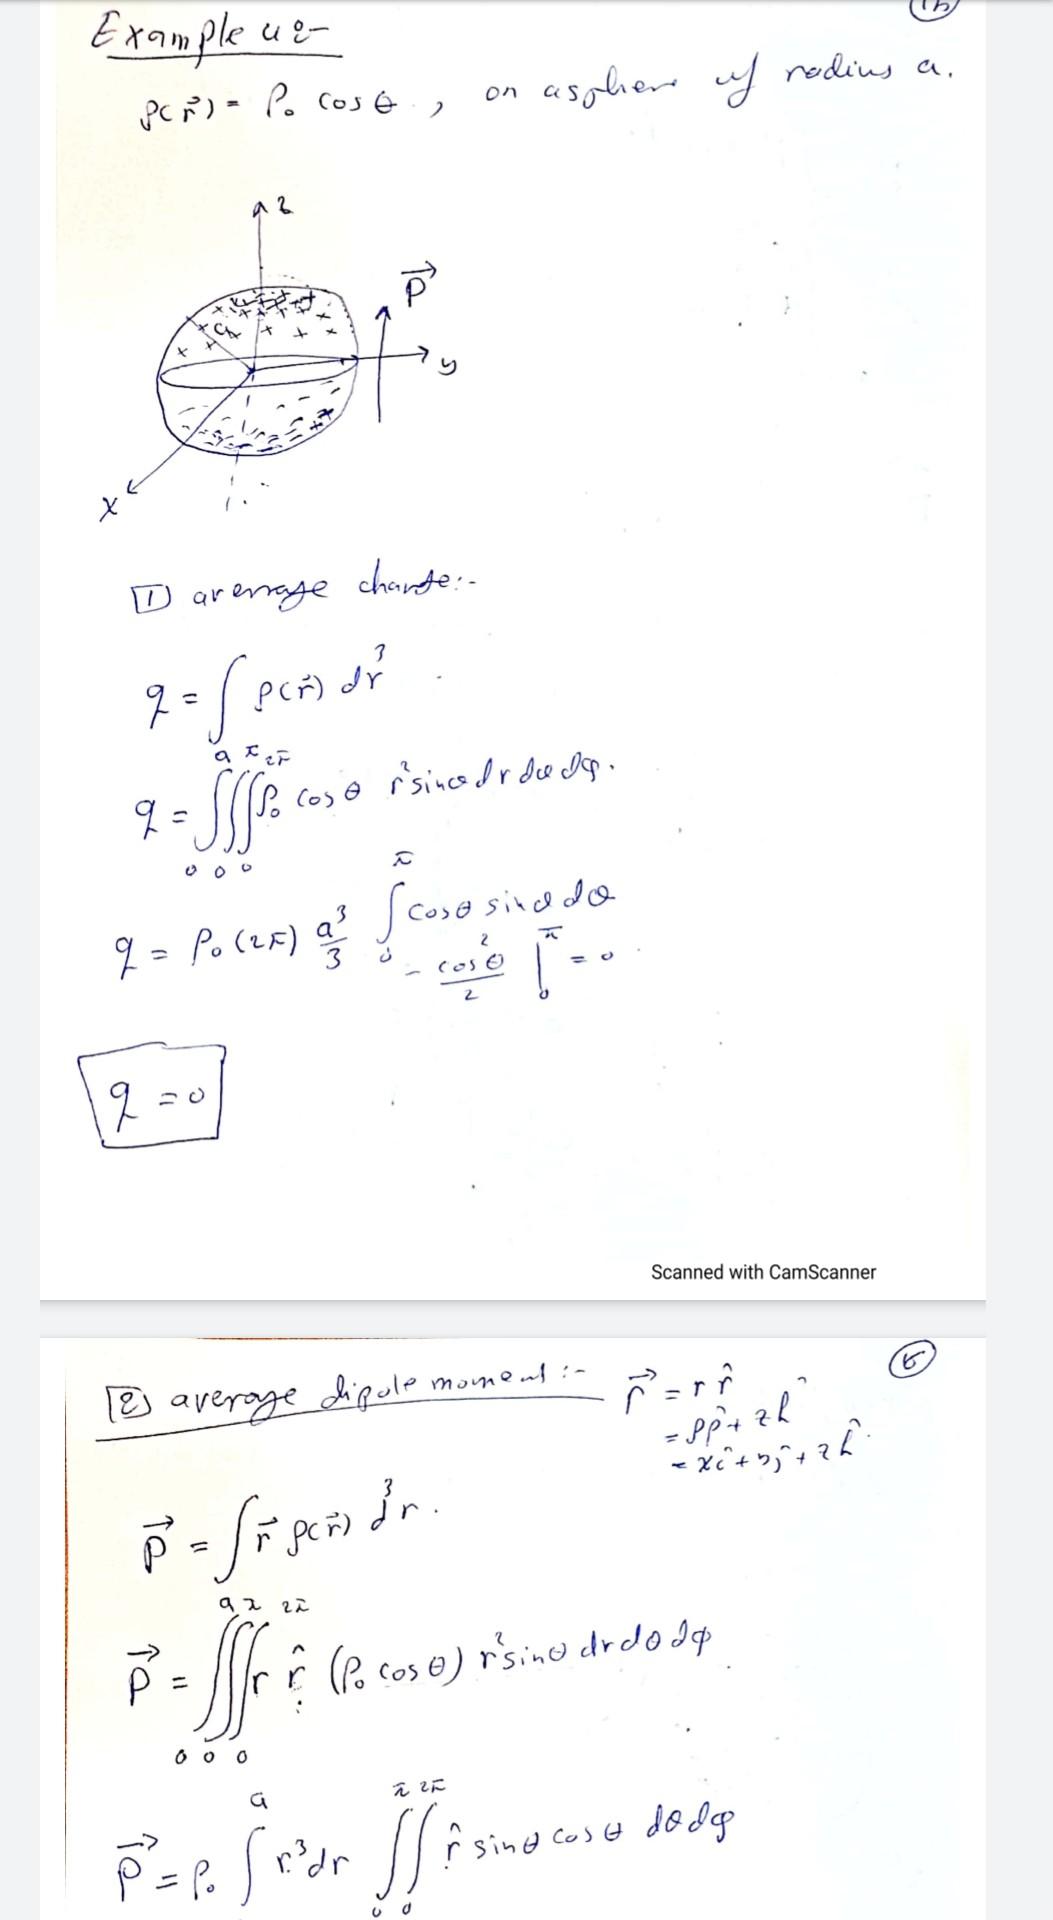 15
Example 4 :-
ρ(r⃗) = ρ₀ cosθ , on a sphere of radius a.
z
P⃗
a
y
x
[1] average charge:-
q = ∫ ρ(r⃗) dr³
q = ∫₀ᵃ∫₀^π∫₀^2π ρ₀ cosθ r² sinθ dr dθ dφ.
q = ρ₀ (2π) a³/3 ∫₀^π cosθ sinθ dθ
- cos²θ/2 |₀^π = 0
q = 0
Scanned with CamScanner
[2] average dipole moment :- r⃗ = r r̂
= ρ ρ̂ + z k̂
= x î + y ĵ + z k̂.
P⃗ = ∫ r⃗ ρ(r⃗) d³r.
P⃗ = ∫₀ᵃ∫₀^π∫₀^2π r r̂ (ρ₀ cosθ) r² sinθ dr dθ dφ
P⃗ = ρ₀ ∫ᵃ r³ dr ∫₀^π∫₀^2π r̂ sinθ cosθ dθ dφ